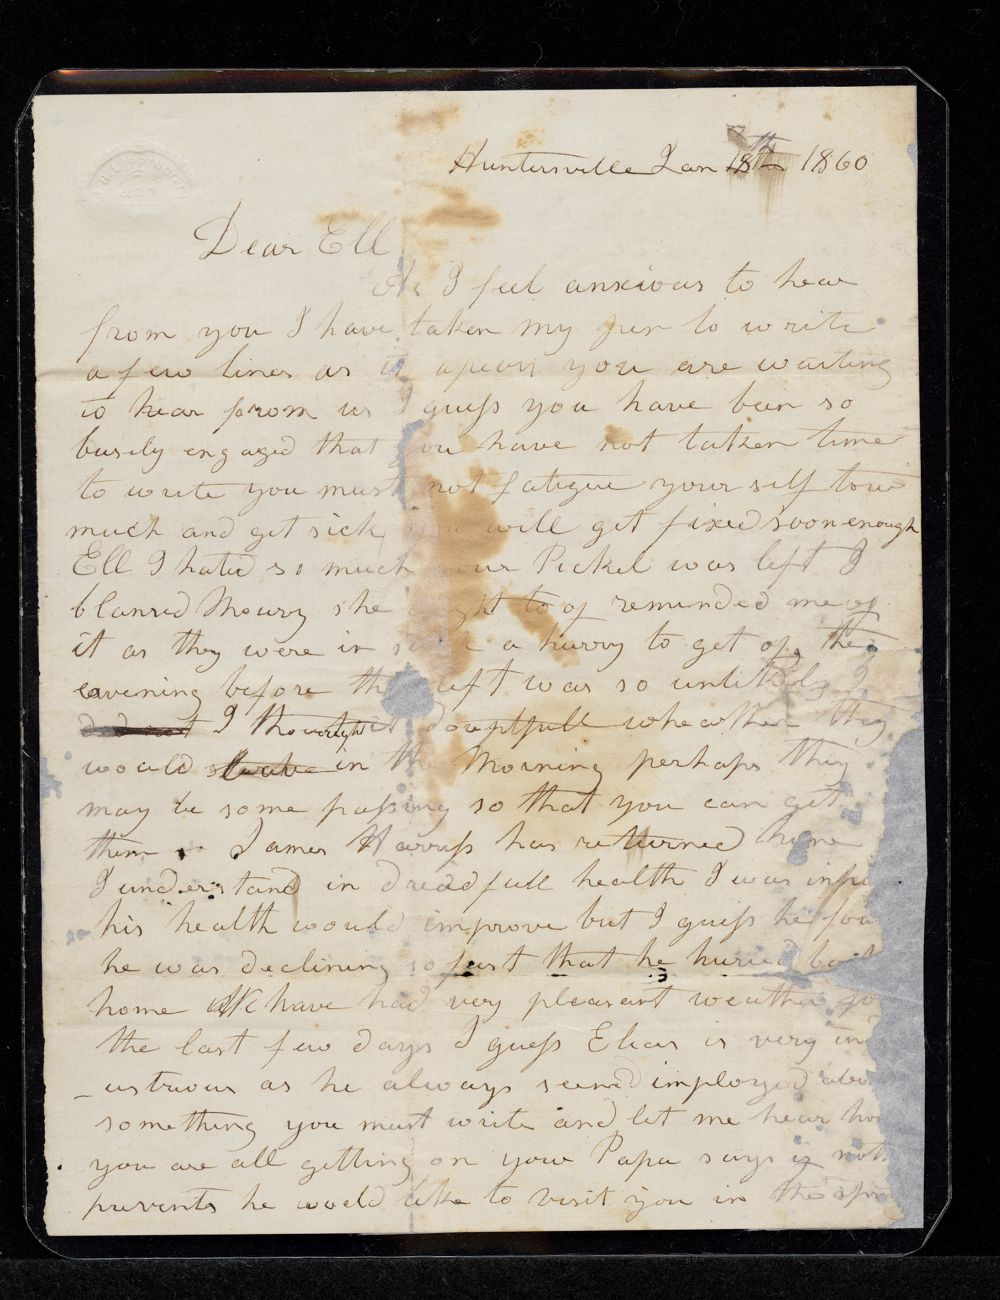 Huntersville Jan 18th 1860
Dear Ell
As I feel anxious to hear
from you I have taken my pen to write
a few lines as it apears you are waiting
to hear from us I guess you have been so
busily engaged that you have not taken time
to write you must not fatigue your self too
much and get sick, you will get fixed soon enough
Ell I hated so much your Pickel was left I
blamed Moury she ought to of reminded me of
it as they were in such a hurry to get of, the
eavening before they left was so unlikely I
did not I thought it doubtfull wheather they
would in the Morning perhaps they
may be some passing so that you can get
them James Harriss has returned home
I understand in dreadfull health I was in
his health would improve but I guess he fou
he was declining so fast that he huried back
home We have had very pleasant weather fo
the last few days I guess Elias is very in
ustrious as he always seemd imployed abou
something you must write and let me hear how
you are all getting on your Papa says if noth
prevents he would like to visit you in the spr